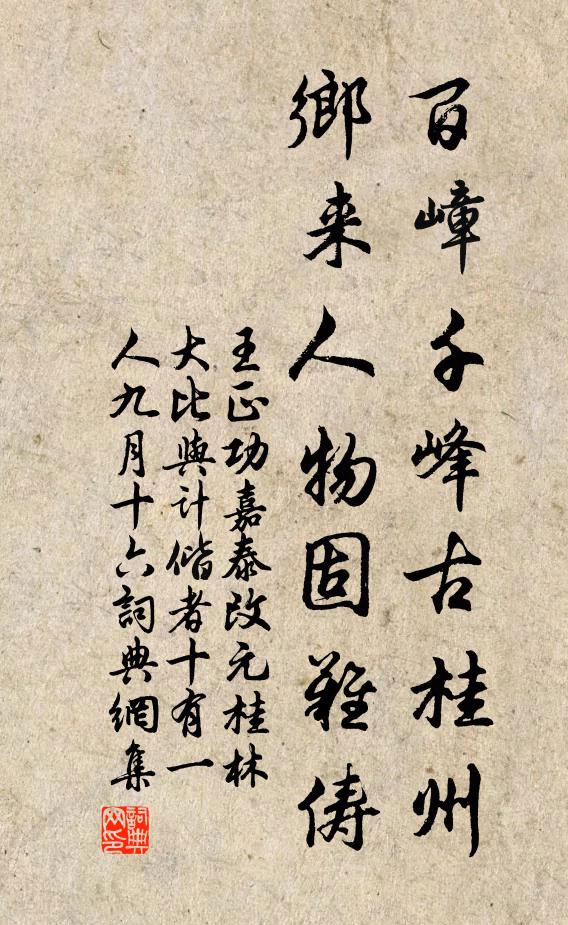 百嶂千峰古桂州
鄉来人物固難儔
王正功嘉泰改元桂林
大比與計偕者十有一
人九月十六詞典網集
詞典網印